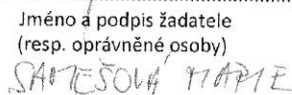 Jméno a podpis žadatele
(resp. oprávněné osoby)
SAMEŠOVÁ MARIE